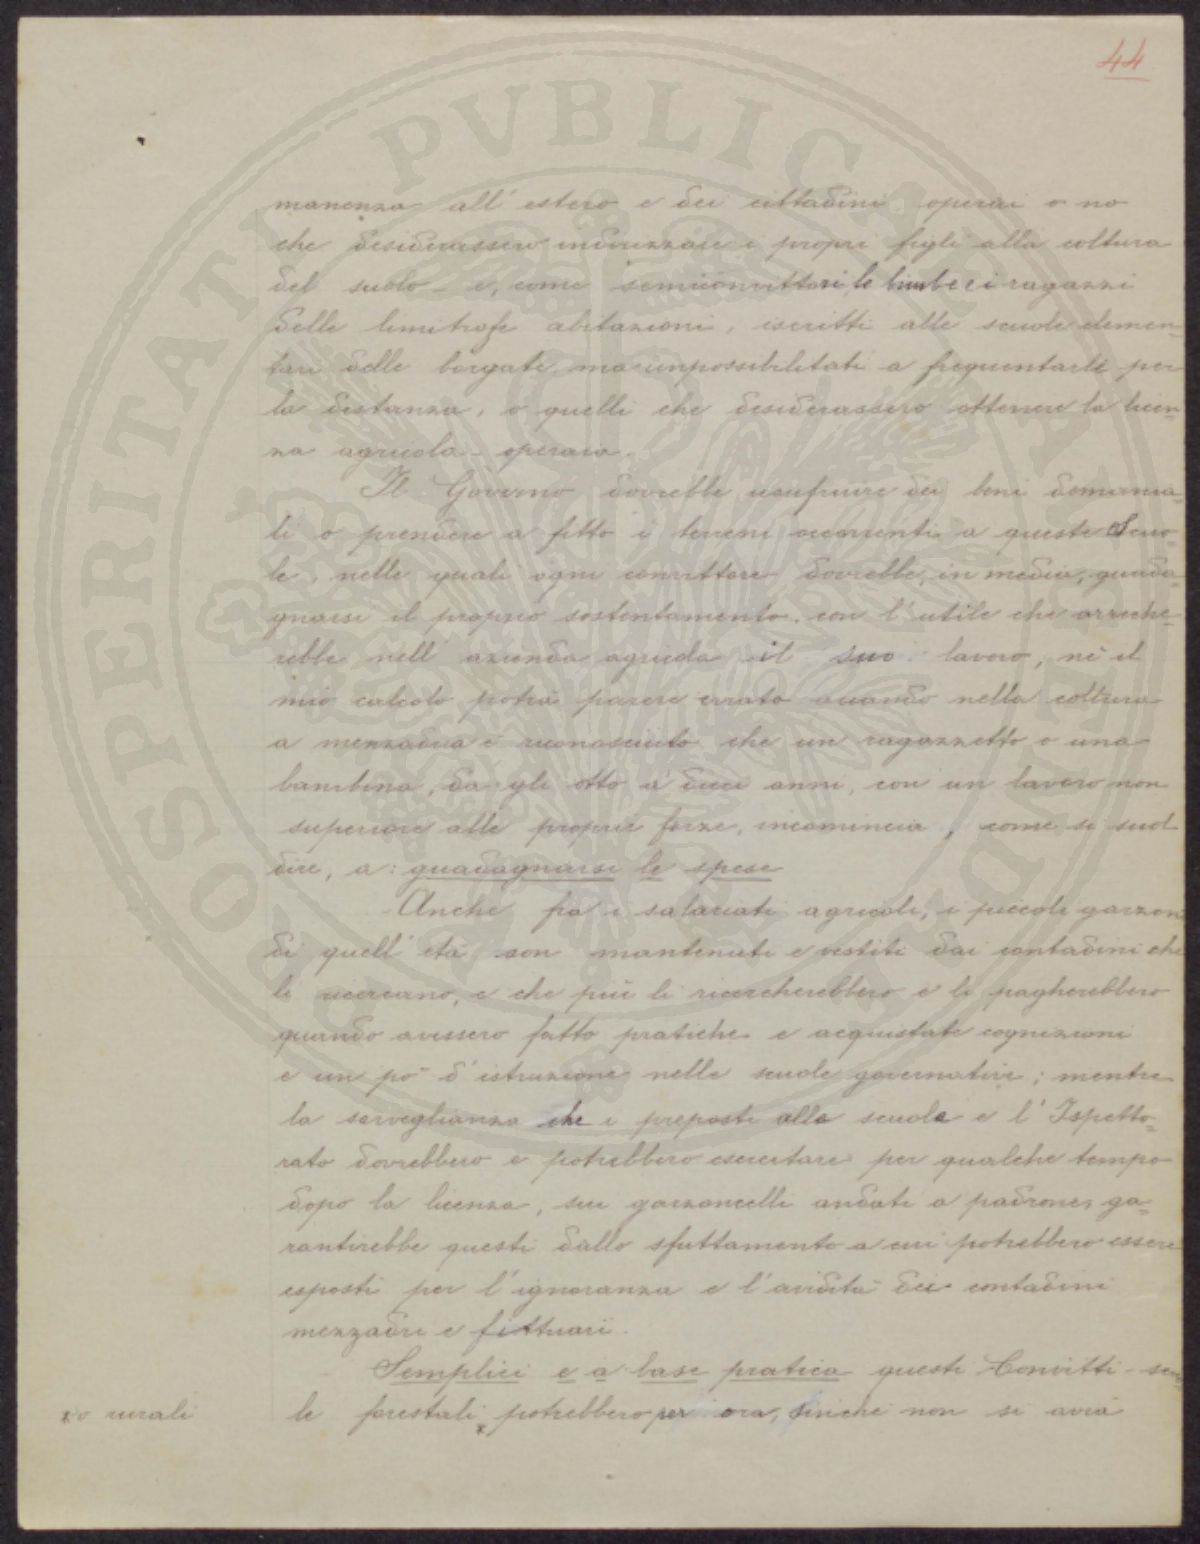 44
manenza all'estero e dei cittadini operai o no
che desiderassero indirizzare i propri figli alla coltura
del suolo - e, come semiconvittori, le bimbe e i ragazzi
delle limitrofe abitazioni, iscritti alle scuole elemen=
tari delle borgate, ma impossibilitati a frequentarle per
la distanza, o quelli che desiderassero ottenere la licen=
za agricola - operaia.
Il Governo dovrebbe usufruire dei beni demania=
li o prendere a fitto i terreni occorrenti a queste Scuo=
le, nelle quali ogni convittore dovrebbe, in media, guada=
gnarsi il proprio sostentamento, con l'utile che arreche=
rebbe nell'azienda agricola il suo lavoro, nè il
mio calcolo potrà parere errato quando nella coltura
a mezzadria è riconosciuto che un ragazzetto o una
bambina, da gli otto a' dieci anni, con un lavoro non
superiore alle proprie forze, incomincia, come si suol
dire, a: guadagnarsi le spese
Anche fra i salariati agricoli, i piccoli garzoni
di quell'età son mantenuti e vestiti dai contadini che
li ricercano, e che più li ricercherebbero e li pagherebbero
quando avessero fatto pratiche e acquistate cognizioni
e un po' d'istruzione nelle scuole governative; mentre
la sorveglianza che i preposti alle scuole e l'Ispetto=
rato dovrebbero e potrebbero esercitare per qualche tempo
dopo la licenza, sui garzoncelli andati a padrone, ga=
rantirebbe questi dallo sfuttamento a cui potrebbero essere
esposti per l'ignoranza e l'avidità dei contadini
mezzadri e fittuari.
Semplici e a base pratica questi Convitti - scuo=
le forestali x potrebbero per ora, finchè non si avrà
x o rurali
SOSPERITATI PVBLICAE AVGENDAE